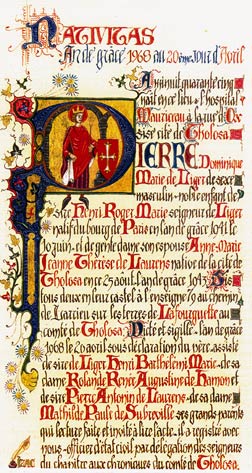 Nativitas
An de grâce 1968 au 20ème Jour d'Avril
A minuit quarante cinq
nait en ce lieu à l'hospital
de la cité de
site de Tholosa
Pierre Dominique
Marie de Liger de sexe
masculin - noble enfant de
sire Henri Roger Marie seigneur de Liger
natif du bourg de Paris en l'an de grâce 1941 le
10 juin - et de gente dame son espouse Anne-Marie
Jeanne Thérèse de Laurens native de la cité de
Tholosa en 25 août - l'an de grâce 194 Sis
tous deux en leur castel à en seigne 10 au chemin
de Larcin sur les terres de Lafourguette au
comté de Tholosa Dicté et sigillé l'an de grâce
1968 le 20 avril sous déclaration du père - assisté
de sire de Liger Henri Barthélémi Marie - de sa
dame Rolande Renée Augustine de Hamon et
de sire Pierre Antonin de Laurens - de sa dame
Mathilde Paule de Subreville ses grands parents
qui lecture faite et invité à lire l'acte - il a registré avec
nous - officier d'état civil par délégation des seigneurs
du chapitre aux chroniques du comté de Tholosa